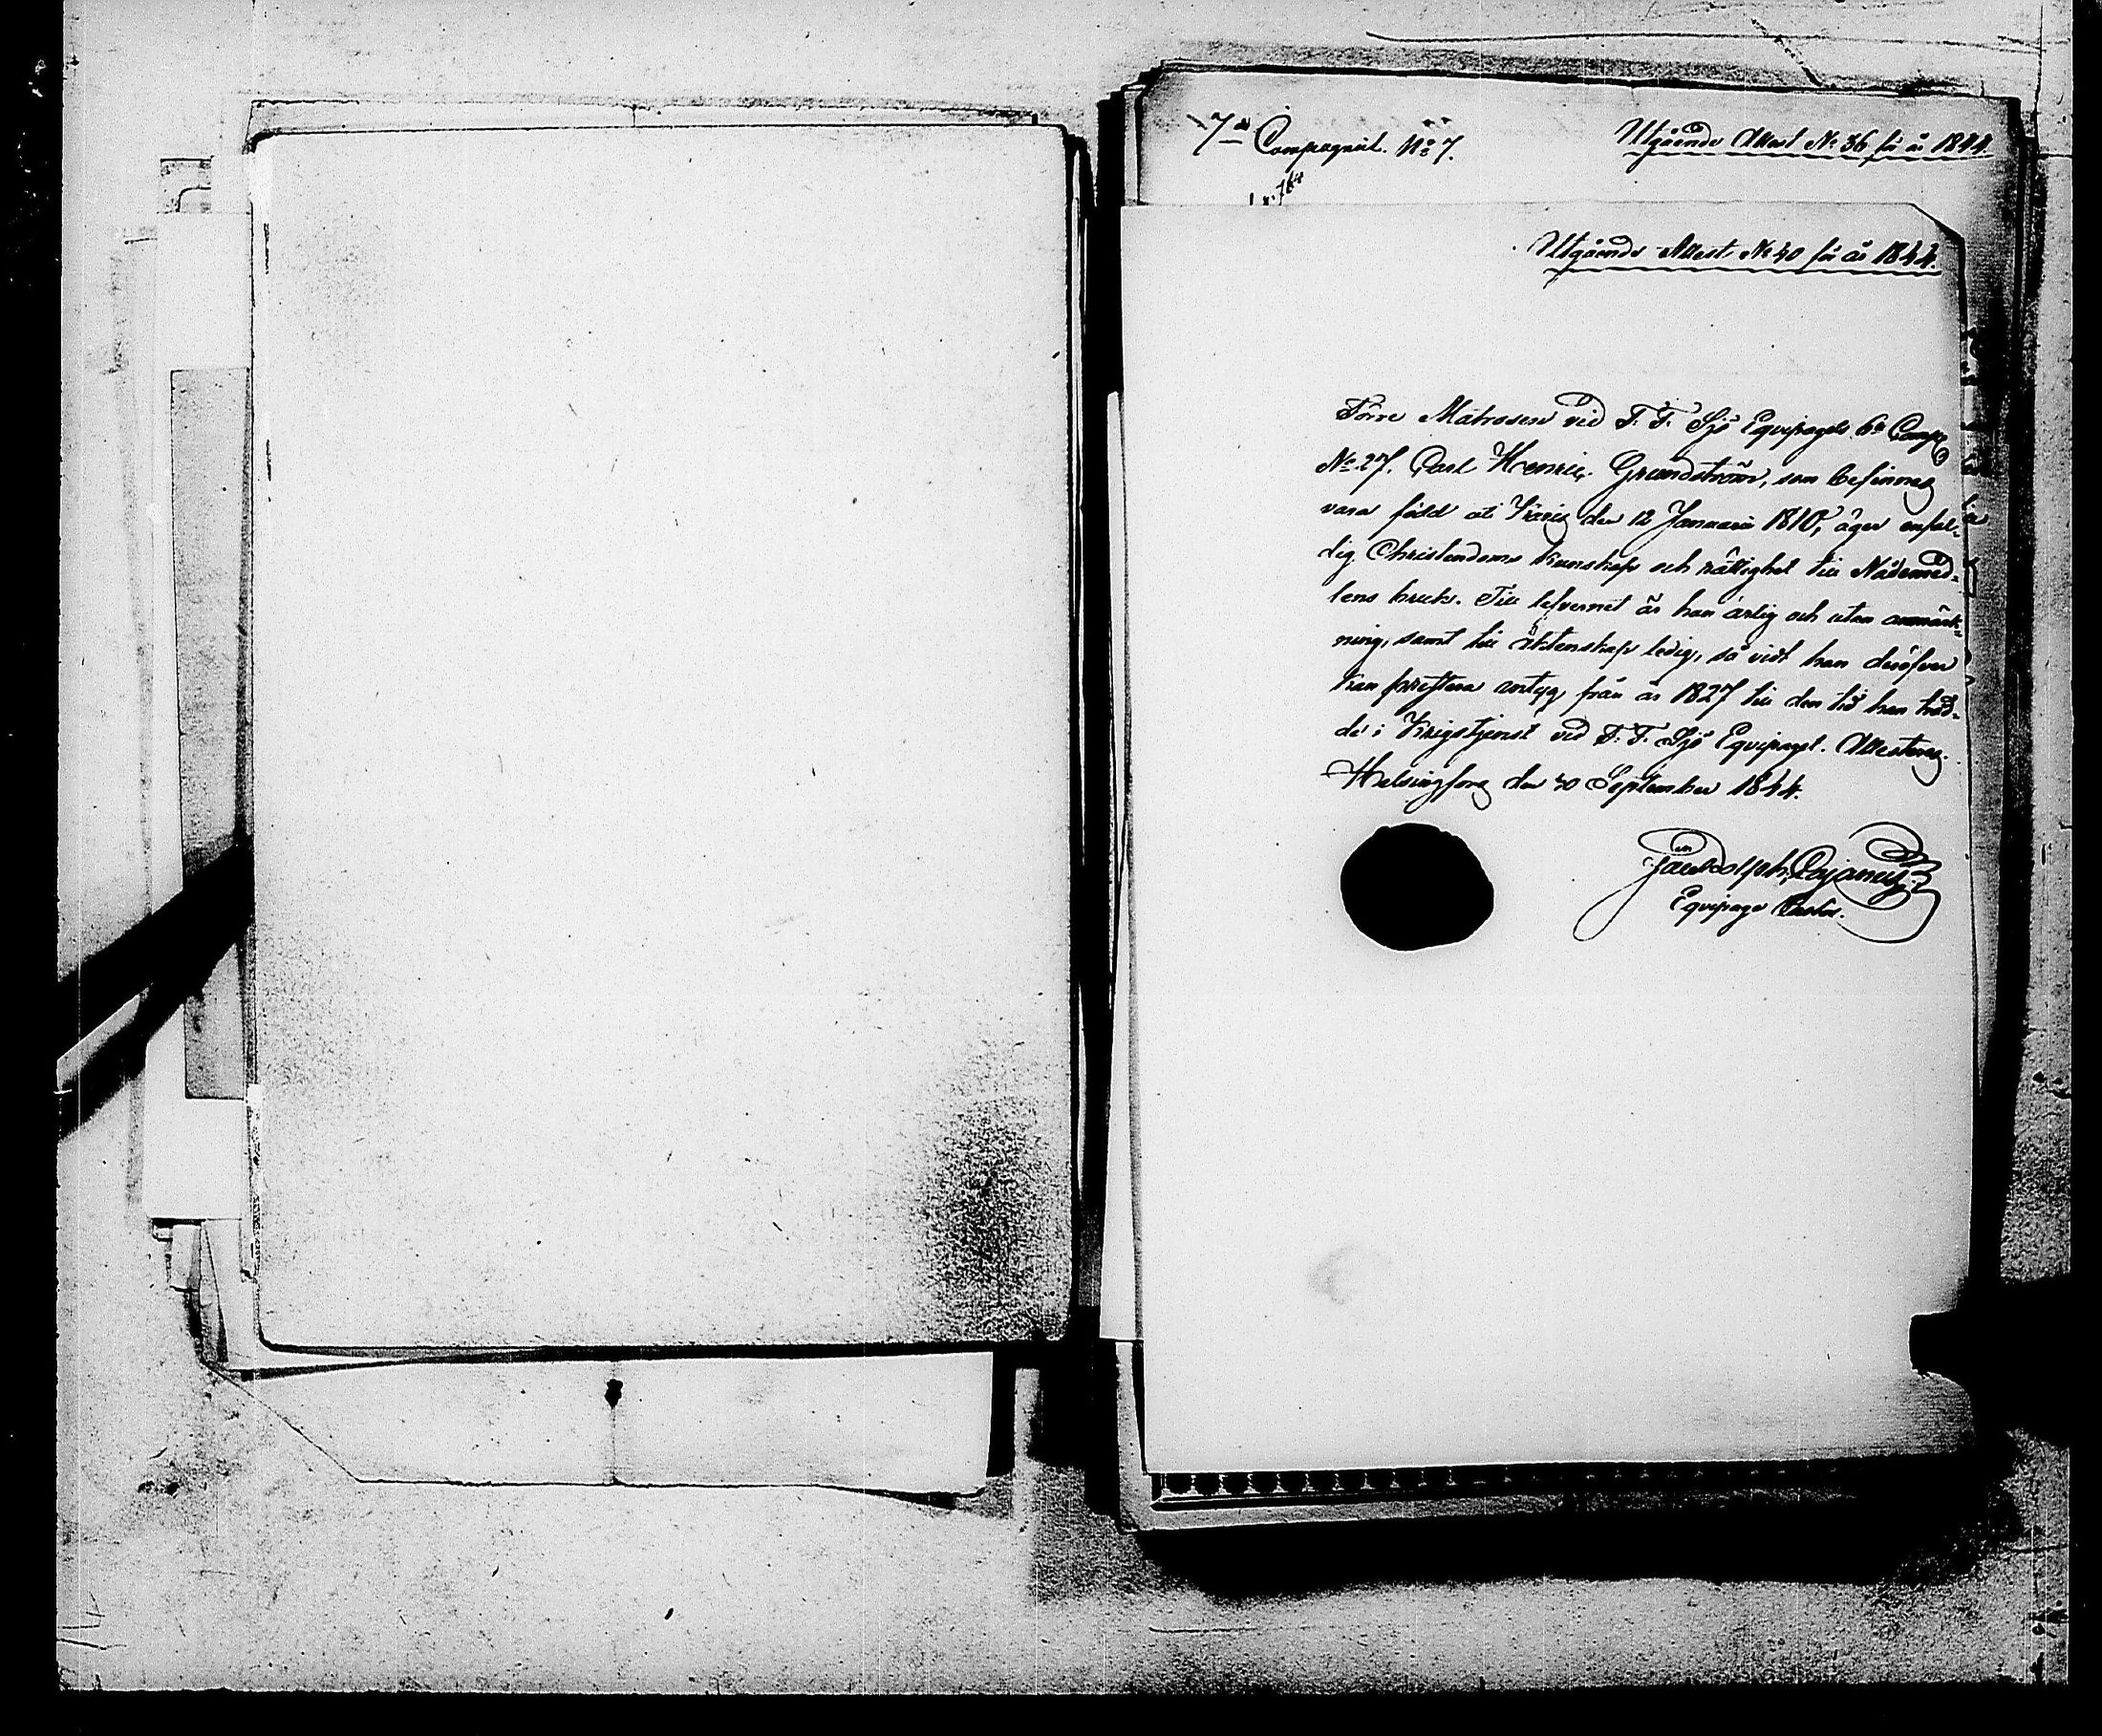 7de Compagniet. No 7.
Utgående Attest No 36 för år 1844.
Utgående Attest No 40 för år 1844.
Förre Matrosen vid F. F. Sjö Equipagets 6te Comp.
No 27. Carl Henric Grundström, som befinnes
vara född uti Karis den 12 Januarii 1810, äger enfal-
dig Christendoms kunskap och rättighet till Nådemed-
lens bruk. Till lefvernet är han ärlig och utan anmärk-
ning, samt till äktenskap ledig, så vidt han deröfver
kan prestera intyg, från år 1827 till den tid han träd-
de i Krigstjenst vid F. F. Sjö Equipaget. Attesteras
Helsingfors den 30 September 1844.
Cajanus
Equipage Pastor.